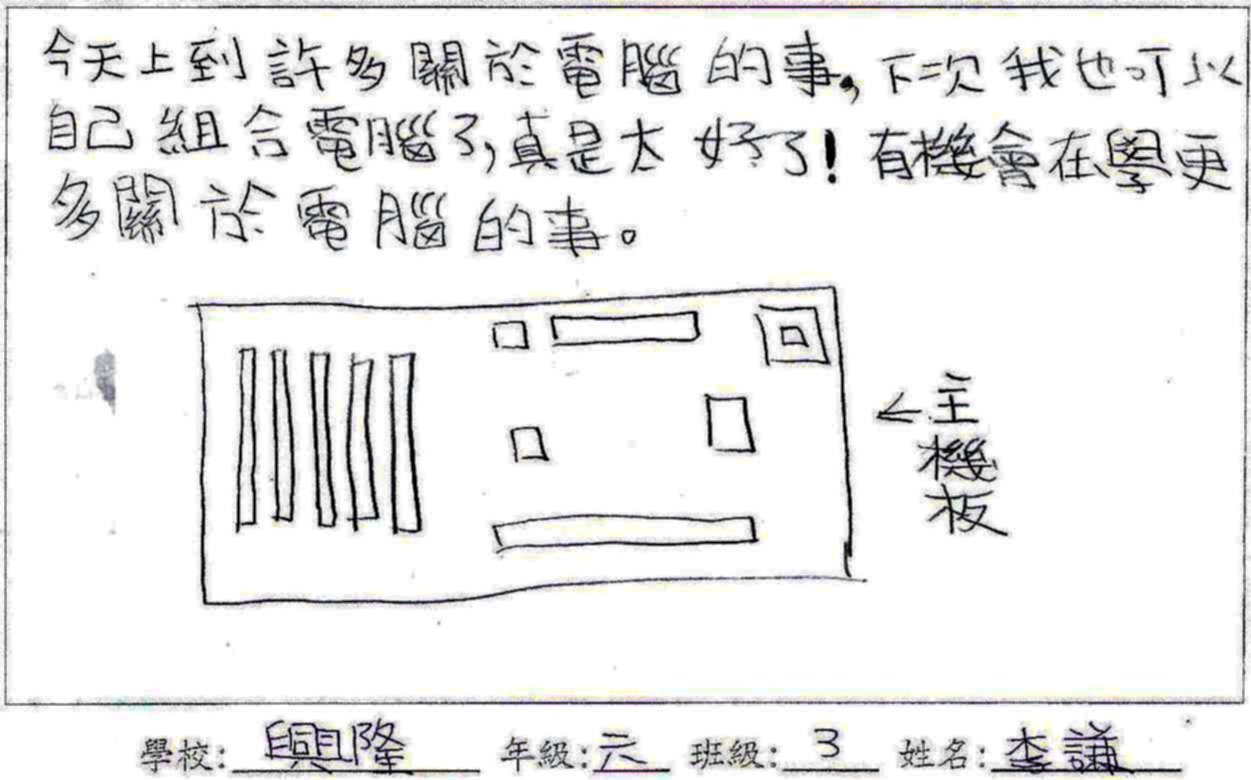 今天上到許多關於電腦的事,下次我也可以
自己組合電腦了,真是太好了!有機會在學更
多關於電腦的事。
←主機板
學校:興隆 年級:六 班級:3 姓名:李謙